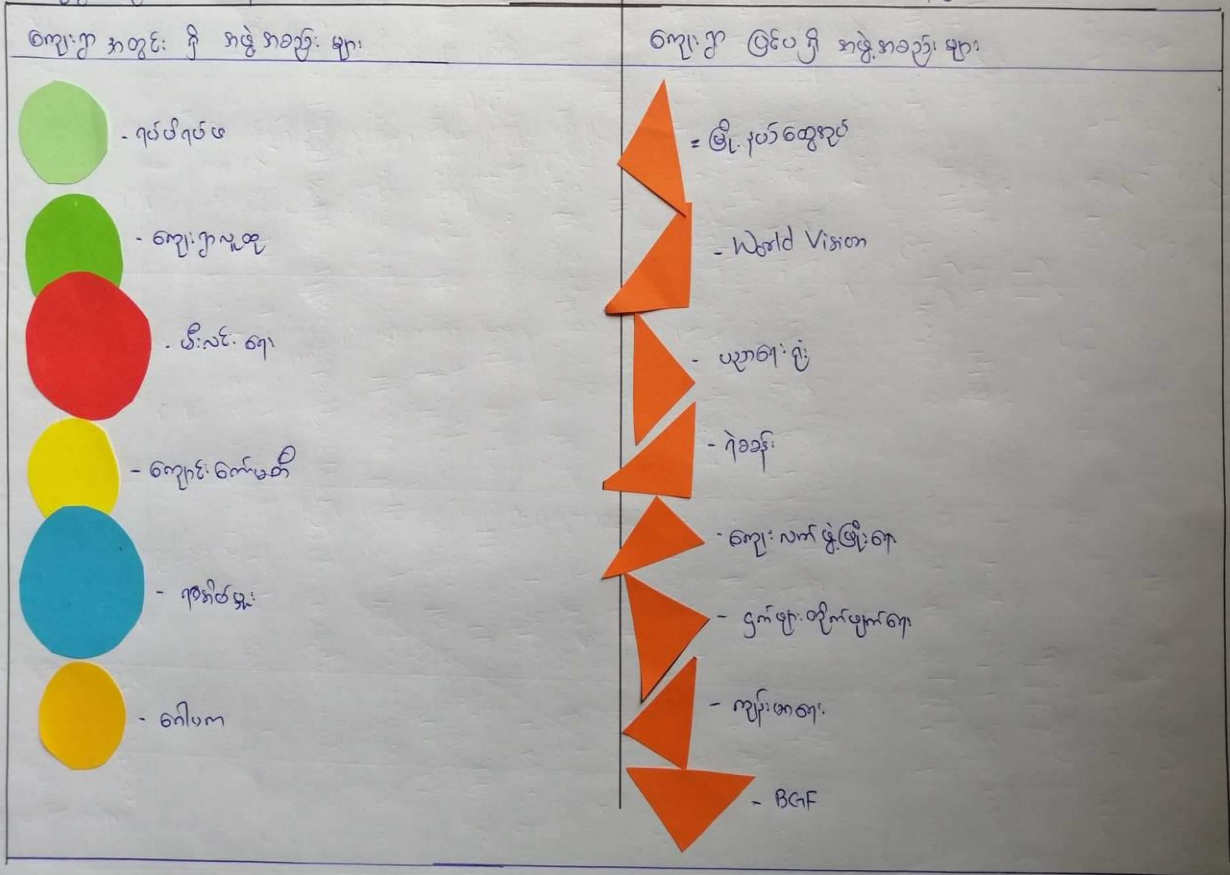 ကျေးရွာ အတွင်း ရှိ အဖွဲ့အစည်း များ
- ရပ်မိရပ်ဖ
- ကျေးရွာလူထု
- မီးလင်းရေး
- ကျောင်းကော်မတီ
- ရာအိမ်မှူး
- ဂေါပက
ကျေးရွာ ပြင်ပရှိ အဖွဲ့အစည်း များ
= မြို့နယ်ထွေအုပ်
- World Vision
- ပညာရေးရုံး
- ရဲစခန်း
- ကျေးလက်ဖွံ့ဖြိုးရေး
- ငှက်ဖျားတိုက်ဖျက်ရေး
- ကျန်းမာရေး
- BGF